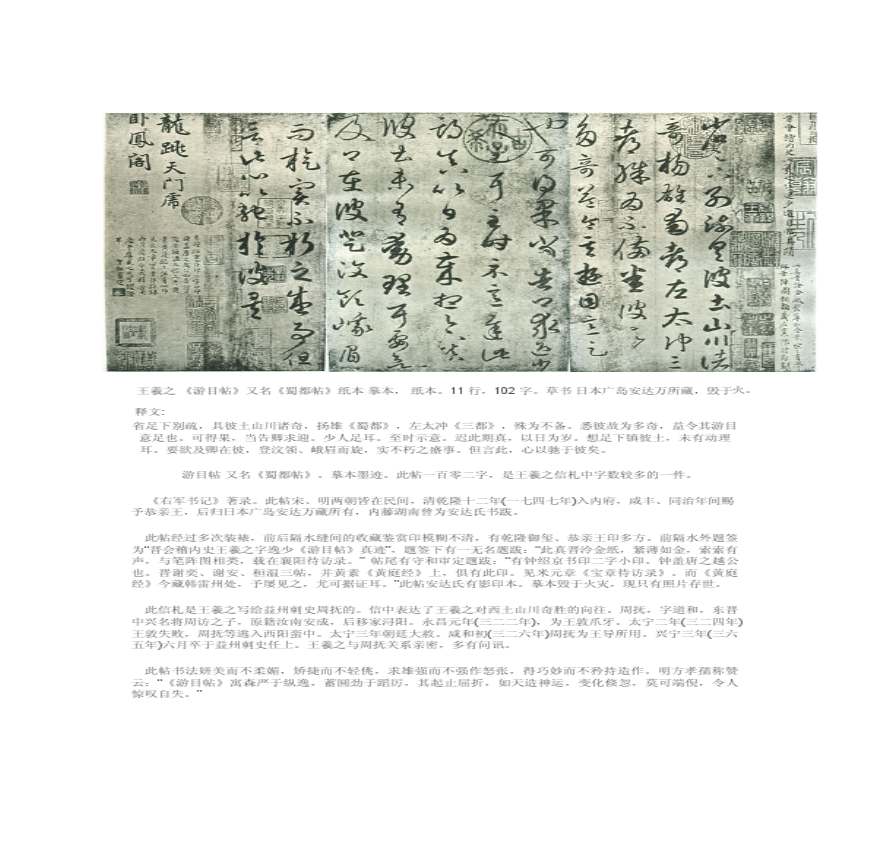 省足下别疏具彼土山川諸
奇揚雄蜀都左太冲三
都殊為不備悉彼故
多奇益令其遊目意足
也可得果當告卿求迎少
人足耳至時示意遲此
期真以日為歲想足下鎮
彼土未有動理耳要欲
及卿在彼登汶領峨眉
而旋實不朽之盛事但
言此心以馳於彼矣
龍跳天門虎
卧鳳閣
王羲之 《游目帖》又名《蜀都帖》纸本 摹本, 纸本。11 行,102 字。草书 日本广岛安达万所藏,毁于火。
释文:
省足下别疏,具彼土山川诸奇,扬雄《蜀都》,左太冲《三都》,殊为不备。悉彼故为多奇,益令其游目
意足也。可得果,当告卿求迎。少人足耳。至时示意。迟此期真,以日为岁。想足下镇彼土,未有动理
耳。要欲及卿在彼,登汶领、峨眉而旋,实不朽之盛事。但言此,心以驰于彼矣。
游目帖 又名《蜀都帖》。摹本墨迹。此帖一百零二字,是王羲之信札中字数较多的一件。
《右军书记》著录。此帖宋、明两朝皆在民间,清乾隆十二年(一七四七年)入内府,咸丰、同治年间赐
予恭亲王,后归日本广岛安达万藏所有,内藤湖南曾为安达氏书跋。
此帖经过多次装裱,前后隔水缝间的收藏鉴赏印模糊不清,有乾隆御玺、恭亲王印多方。前隔水外题签
为“晋会稽内史王羲之字逸少《游目帖》真迹”,题签下有一无名题跋:“此真晋冷金纸,紧薄如金,索索有
声。与笔阵图相类,载在襄阳待访录。” 帖尾有守和审定题跋:“有钟绍京书印二字小印。钟盖唐之越公
也。晋谢奕、谢安、桓温三帖,并黄素《黄庭经》上,俱有此印。见米元章《宝章待访录》。而《黄庭
经》今藏韩雷州处,予屡见之,尤可据证耳。”此帖安达氏有影印本。摹本毁于火灾,现只有照片存世。
此信札是王羲之写给益州刺史周抚的。信中表达了王羲之对西土山川奇胜的向往。周抚,字道和,东晋
中兴名将周访之子,原籍汝南安成,后移家浔阳。永昌元年(三二二年),为王敦爪牙。太宁二年(三二四年)
王敦失败,周抚等逃入西阳蛮中。太宁三年朝廷大赦。咸和初(三二六年)周抚为王导所用。兴宁三年(三六
五年)六月卒于益州刺史任上。王羲之与周抚关系亲密,多有问讯。
此帖书法妍美而不柔媚,矫捷而不轻佻,求雄强而不强作怒张,得巧妙而不矜持造作。明方孝孺称赞
云:“《游目帖》寓森严于纵逸,蓄圆劲于蹈厉,其起止屈折,如天造神运,变化倏忽,莫可端倪,令人
惊叹自失。”